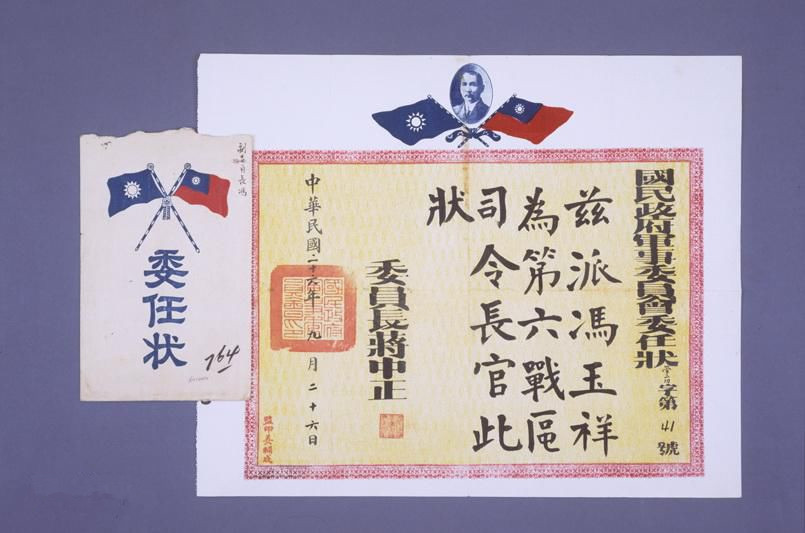 國民政府軍事委員會委任狀
字第41號
茲派馮玉祥
為第六戰區
司令長官此
狀
委員長蔣中正
中華民國二十六年九月二十六日
副委員長馮
委任狀
764